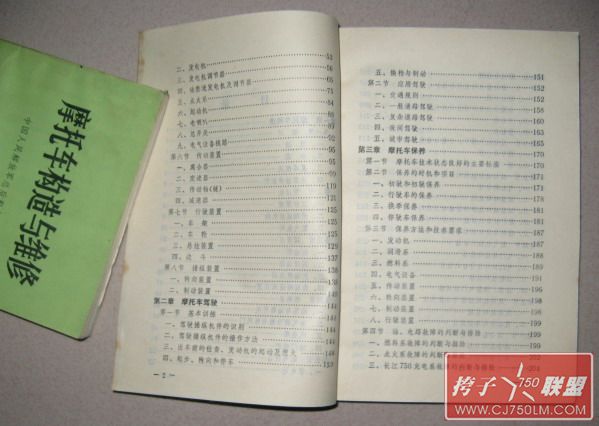 摩托车构造与维修
中国人民解放军总后勤
二、发电机 52
三、发电机调节器 56
五、点火系
六、起动机
八、总开关
九、电气设备线路
第六节 传动装置
一、离合器
二、变速器
三、传动轴(链)
四、减速器
第七节 行驶装置 125
一、车架
二、车轮
三、悬挂装置
四、边斗
第八节 操纵装置 139
一、转向装置 139
二、制动装置
第二章 摩托车驾驶 144
第一节 基本训练 144
一、驾驶操纵机件的识别 144
二、驾驶操纵机件的操作方法
三、出车前的检查、发动机的起动及熄火
四、起步、转向和停车
— 2 —
五、换档与制动 151
第二节 应用驾驶 152
一、交通规则 152
二、一般道路驾驶 158
三、复杂道路驾驶 160
四、夜间驾驶 165
五、城市驾驶 165
第三章 摩托车保养 170
第一节 摩托车技术状态良好的主要标志 170
第二节 保养的时机和项目 171
一、初驶和初驶保养 171
二、行驶车的保养
三、换季保养
四、停驶车保养 187
第三节 保养方法和技术要求 187
一、发动机 187
二、润滑系
三、燃料系
四、电气设备
五、传动装置
六、转向装置
七、制动装置
八、行驶装置 199
第四节 油、电路故障的判断与排除 199
一、燃料系故障的判断与排除 199
二、点火系故障的判断与排除
三、长江750充电系故障的判断与排除 204
挎子 750 联盟
WWW.CJ750LM.COM